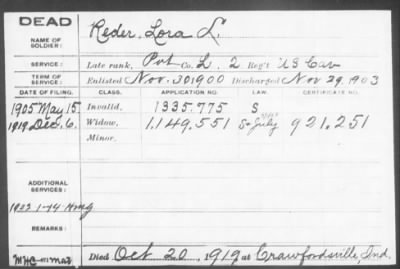 DEAD
NAME OF SOLDIER: Reder, Lora L.
SERVICE: Late rank, Pvt Co. L. 2 Reg't US Cav
TERM OF SERVICE: Enlisted Nov. 30 1900 Discharged Nov 29, 1903
DATE OF FILING. CLASS. APPLICATION NO. LAW. CERTIFICATE NO.
1905 May 15 Invalid, 1335.775 S
1919 Dec. 6. Widow, 1,149,551 July 921,251
Minor.
ADDITIONAL SERVICES:
REMARKS:
Died Oct 20, 1919 at Crawfordsville, Ind.